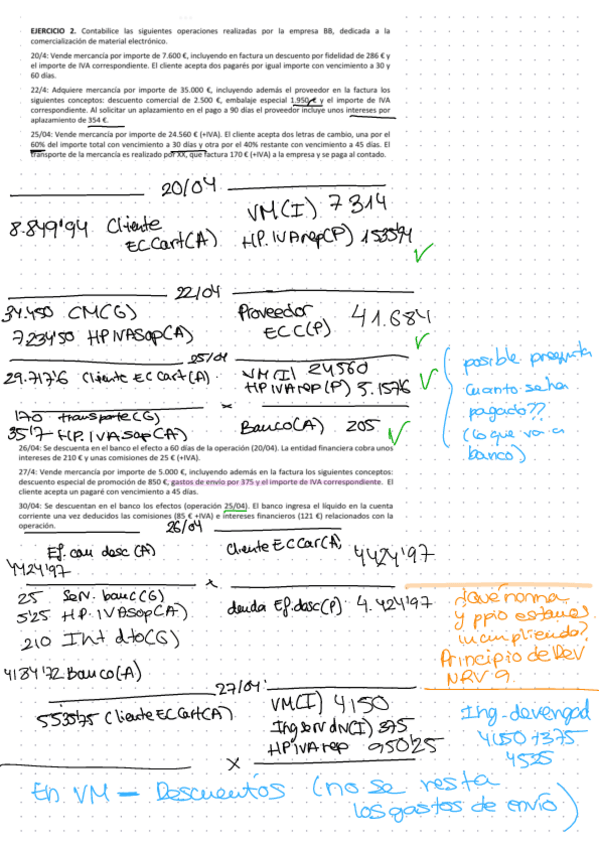 EJERCICIO 2. Contabilice las siguientes operaciones realizadas por la empresa BB, dedicada a la
comercialización de material electrónico.
20/4: Vende mercancía por importe de 7.600 €, incluyendo en factura un descuento por fidelidad de 286 € y
el importe de IVA correspondiente. El cliente acepta dos pagarés por igual importe con vencimiento a 30 y
60 días.
22/4: Adquiere mercancía por importe de 35.000 €, incluyendo además el proveedor en la factura los
siguientes conceptos: descuento comercial de 2.500 €, embalaje especial 1.950 € y el importe de IVA
correspondiente. Al solicitar un aplazamiento en el pago a 90 días el proveedor incluye unos intereses por
aplazamiento de 354 €.
25/04: Vende mercancía por importe de 24.560 € (+IVA). El cliente acepta dos letras de cambio, una por el
60% del importe total con vencimiento a 30 días y otra por el 40% restante con vencimiento a 45 días. El
transporte de la mercancía es realizado por XX, que factura 170 € (+IVA) a la empresa y se paga al contado.
20/04
8.849'94 Cliente EC Cart(A)
VM(I) 7314
HP.IVArep(P) 1535'94
22/04
34.450 CM(G)
7234'50 HPIVASop(A)
Proveedor ECC(P) 41.684
25/04
29.717'6 Cliente EC Cart(A)
VM(I) 24560
HPIVArep(P) 5.157'6
x
170 transporte(G)
35'7 H.P.IVASop(A)
Banco(A) 205
posible pregunta
cuanto se ha
pagado??
(lo que va a
banco)
26/04: Se descuenta en el banco el efecto a 60 días de la operación (20/04). La entidad financiera cobra unos
intereses de 210 € y unas comisiones de 25 € (+IVA).
27/4: Vende mercancía por importe de 5.000 €, incluyendo además en la factura los siguientes conceptos:
descuento especial de promoción de 850 €, gastos de envío por 375 y el importe de IVA correspondiente. El
cliente acepta un pagaré con vencimiento a 45 días.
30/04: Se descuentan en el banco los efectos (operación 25/04). El banco ingresa el líquido en la cuenta
corriente una vez deducidas las comisiones (85 € +IVA) e intereses financieros (121 €) relacionados con la
operación.
26/04
Ef. com desc (A)
4424'97
Cliente EC Car(A) 4424'97
x
25 Serv. banc(G)
5'25 H.P. IVASop(A)
210 Int dto(G)
4184'72 Banco(A)
deuda Ef.desc(P) 4.424'97
¿Qué norma
y ppio estamos
incumpliendo?
Principio de Dev
NRV 9
27/04
5535'75 Cliente EC Cart(A)
VM(I) 4150
Ing serv dv(I) 375
HPIVArep 950'25
x
Ing. devengad
4150+375
4525
En VM — Descuentos (no se resta
los gastos de envío)